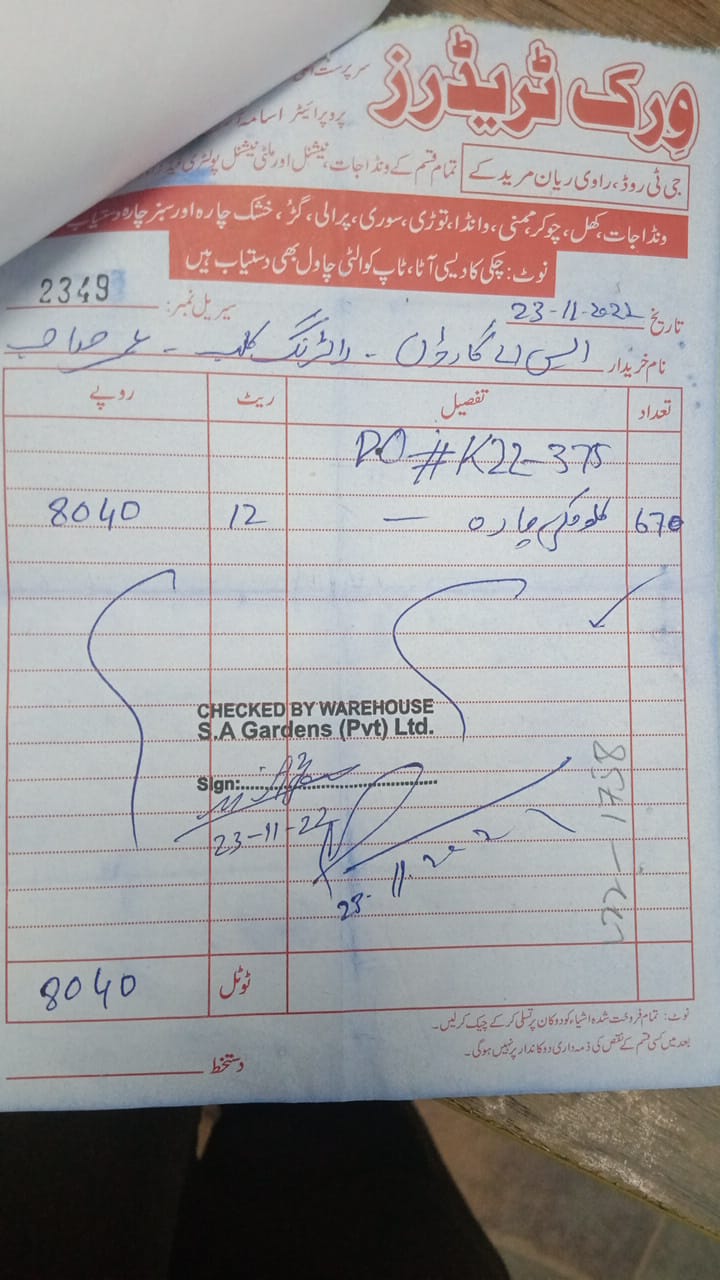 ورک ٹریڈرز
سرپرست
پروپرائیٹر اسامہ
جی ٹی روڈ، راوی ریان مریدکے
تمام قسم کے ونڈا جات، نیشنل اور ملٹی نیشنل پولٹری فیڈ
ونڈا جات، کھل، چوکر، ممنی، وانڈا، توڑی، سوری، پرالی، گڑ، خشک چارہ اور سبز چارہ دستیاب
نوٹ: چکی کا دیسی آٹا، ٹاپ کوالٹی چاول بھی دستیاب ہیں
تاریخ 23-11-2022 سیریل نمبر: 2349
نام خریدار ایس اے گارڈن - رائڈنگ کلب - صاحب
تعداد تفصیل ریٹ روپے
PO#K22-375
670 کلو چارہ — 12 8040
CHECKED BY WAREHOUSE
S.A Gardens (Pvt) Ltd.
Sign:
23-11-22
23-11-2022
1738
ٹوٹل 8040
نوٹ: تمام فروخت شدہ اشیاء کو دوکان پر تسلی کر کے چیک کرلیں۔
بعد میں کسی قسم کے نقص کی ذمہ داری دوکاندار پر نہیں ہوگی۔
دستخط